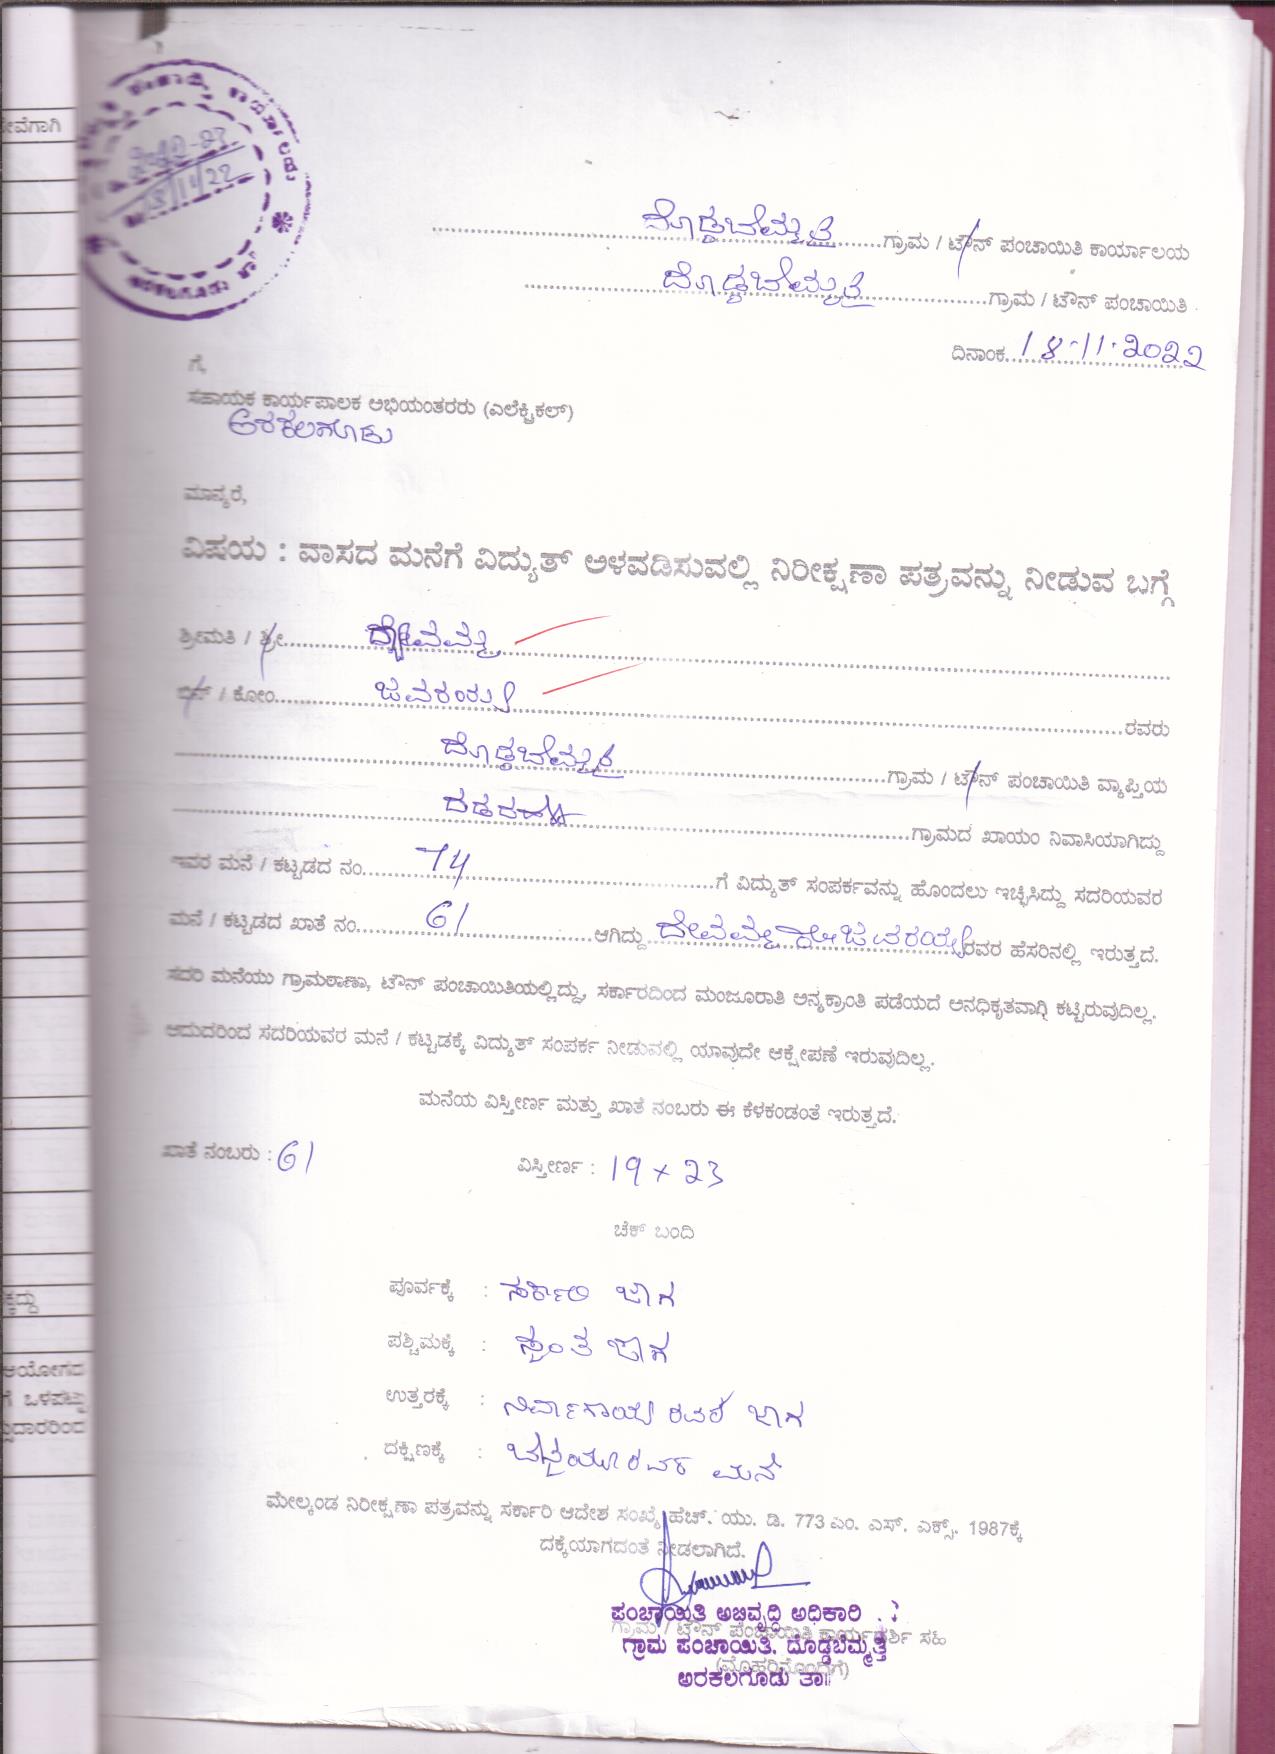 ಸೇವೆಗಾಗಿ
2022-23
18/11/22
ಅರಕಲಗೂಡು
ದೊಡ್ಡಬೆಮ್ಮತ್ತಿ ಗ್ರಾಮ / ಟೌನ್ ಪಂಚಾಯಿತಿ ಕಾರ್ಯಾಲಯ
ದೊಡ್ಡಬೆಮ್ಮತ್ತಿ ಗ್ರಾಮ / ಟೌನ್ ಪಂಚಾಯಿತಿ
ದಿನಾಂಕ 18-11-2022
ಗೆ,
ಸಹಾಯಕ ಕಾರ್ಯಪಾಲಕ ಅಭಿಯಂತರರು (ಎಲೆಕ್ಟ್ರಿಕಲ್)
ಅರಕಲಗೂಡು
ಮಾನ್ಯರೆ,
ವಿಷಯ : ವಾಸದ ಮನೆಗೆ ವಿದ್ಯುತ್ ಅಳವಡಿಸುವಲ್ಲಿ ನಿರೀಕ್ಷಣಾ ಪತ್ರವನ್ನು ನೀಡುವ ಬಗ್ಗೆ
ಶ್ರೀಮತಿ / ಶ್ರೀ ದೇವಮ್ಮ
ಬಿನ್ / ಕೋಂ ಜವರಯ್ಯ ರವರು
ದೊಡ್ಡಬೆಮ್ಮತ್ತಿ ಗ್ರಾಮ / ಟೌನ್ ಪಂಚಾಯಿತಿ ವ್ಯಾಪ್ತಿಯ
ಗ್ರಾಮದ ಖಾಯಂ ನಿವಾಸಿಯಾಗಿದ್ದು
ಇವರ ಮನೆ / ಕಟ್ಟಡದ ನಂ. 74 ಗೆ ವಿದ್ಯುತ್ ಸಂಪರ್ಕವನ್ನು ಹೊಂದಲು ಇಚ್ಛಿಸಿದ್ದು ಸದರಿಯವರ
ಮನೆ / ಕಟ್ಟಡದ ಖಾತೆ ನಂ. 61 ಆಗಿದ್ದು ದೇವಮ್ಮ ಕೋಂ ಜವರಯ್ಯ ರವರ ಹೆಸರಿನಲ್ಲಿ ಇರುತ್ತದೆ.
ಸದರಿ ಮನೆಯು ಗ್ರಾಮಠಾಣಾ, ಟೌನ್ ಪಂಚಾಯಿತಿಯಲ್ಲಿದ್ದು, ಸರ್ಕಾರದಿಂದ ಮಂಜೂರಾತಿ ಅನ್ಯಕ್ರಾಂತಿ ಪಡೆಯದೆ ಅನಧಿಕೃತವಾಗಿ ಕಟ್ಟಿರುವುದಿಲ್ಲ.
ಆದುದರಿಂದ ಸದರಿಯವರ ಮನೆ / ಕಟ್ಟಡಕ್ಕೆ ವಿದ್ಯುತ್ ಸಂಪರ್ಕ ನೀಡುವಲ್ಲಿ ಯಾವುದೇ ಆಕ್ಷೇಪಣೆ ಇರುವುದಿಲ್ಲ.
ಮನೆಯ ವಿಸ್ತೀರ್ಣ ಮತ್ತು ಖಾತೆ ನಂಬರು ಈ ಕೆಳಕಂಡಂತೆ ಇರುತ್ತದೆ.
ಖಾತೆ ನಂಬರು : 61 ವಿಸ್ತೀರ್ಣ : 19 x 23
ಚೆಕ್ ಬಂದಿ
ಪೂರ್ವಕ್ಕೆ : ಸರ್ಕಾರಿ ಜಾಗ
ಪಶ್ಚಿಮಕ್ಕೆ : ಸ್ವಂತ ಜಾಗ
ಉತ್ತರಕ್ಕೆ : ರವರ ಜಾಗ
ದಕ್ಷಿಣಕ್ಕೆ : ರವರ ಮನೆ
ಮೇಲ್ಕಂಡ ನಿರೀಕ್ಷಣಾ ಪತ್ರವನ್ನು ಸರ್ಕಾರಿ ಆದೇಶ ಸಂಖ್ಯೆ ಹೆಚ್. ಯು. ಡಿ. 773 ಎಂ. ಎಸ್. ಎಕ್ಸ್. 1987ಕ್ಕೆ
ದಕ್ಕೆಯಾಗದಂತೆ ನೀಡಲಾಗಿದೆ.
ಪಂಚಾಯಿತಿ ಅಭಿವೃದ್ಧಿ ಅಧಿಕಾರಿ
ಗ್ರಾಮ / ಟೌನ್ ಪಂಚಾಯಿತಿ ಕಾರ್ಯದರ್ಶಿ ಸಹಿ
ಗ್ರಾಮ ಪಂಚಾಯಿತಿ. ದೊಡ್ಡಬೆಮ್ಮತ್ತಿ
(ಮೊಹರಿನೊಂದಿಗೆ)
ಅರಕಲಗೂಡು ತಾ||
ಆಯೋಗದ
ಗೆ ಒಳಪಟ್ಟು